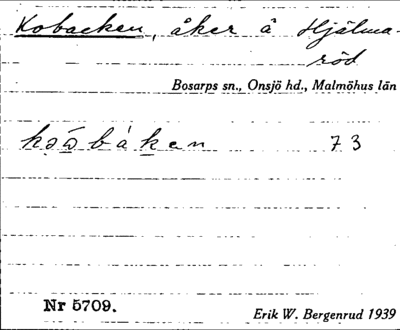 Kobacken, åker å Hjälma-
röd
Bosarps sn., Onsjö hd., Malmöhus län
73
Nr 5709.
Erik W. Bergenrud 1939